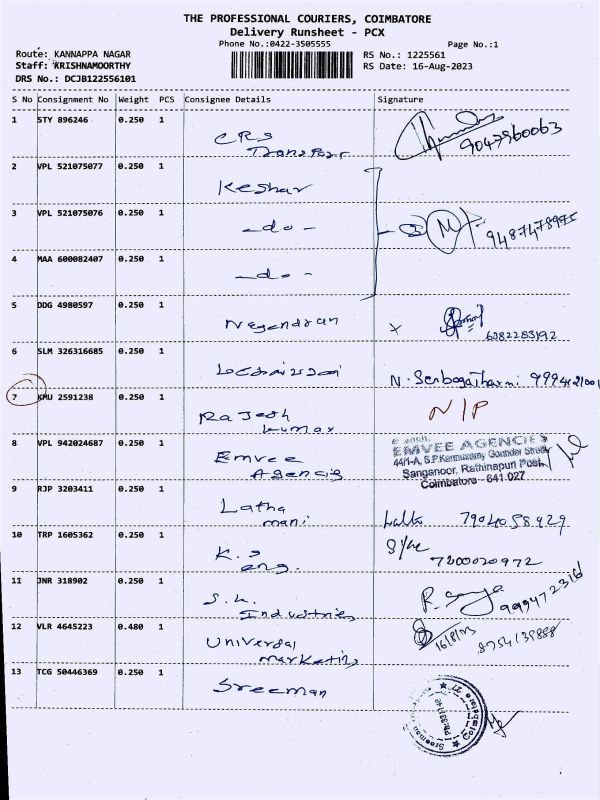 THE PROFESSIONAL COURIERS, COIMBATORE
Delivery Runsheet - PCX
Phone No.:0422-3505555
Page No.:1
Route: KANNAPPA NAGAR
Staff: KRISHNAMOORTHY
DRS No.: DCJB122556101
RS No.: 1225561
RS Date: 16-Aug-2023
S No Consignment No Weight PCS Consignee Details Signature
1 STY 896246 0.250 1
CRS
Transport
9047960063
2 VPL 521075077 0.250 1
Keshav
3 VPL 521075076 0.250 1
-do-
9487478975
4 MAA 600082407 0.250 1
-do-
5 DDG 4980597 0.250 1
Nagendran
x
6382283192
6 SLM 326316685 0.250 1
N. Senbagatharni
7 KMU 2591238 0.250 1
Rajesh
kumar
N/P
8 VPL 942024687 0.250 1
Emvee
Agencis
EMVEE AGENCIES
44/1-A, S.P.Karmuswamy Gounder Street
Sanganoor, Rathinapuri Post,
Coimbatore - 641 027
9 RJP 3203411 0.250 1
Latha
mani
Latha 7904058929
10 TRP 1605362 0.250 1
K.S
eng.
7200020972
11 JNR 318902 0.250 1
S.K.
Industries
12 VLR 4645223 0.480 1
Universal
marketing
8754135888
13 TCG 50446369 0.250 1
Sreeman